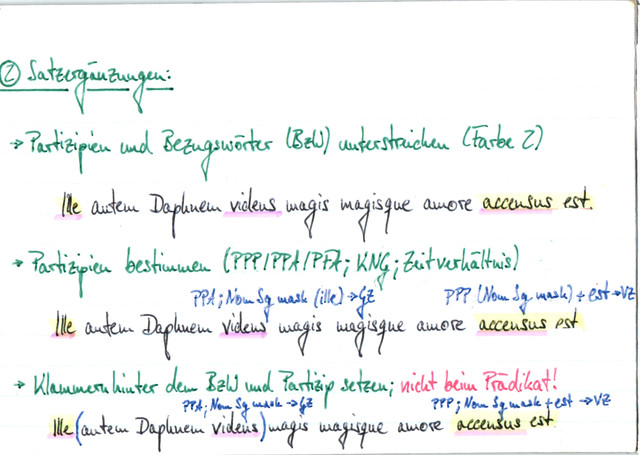 ② Satzergänzungen:
→ Partizipien und Bezugswörter (BzW) unterstreichen (Farbe 2)
Ille autem Daphnem videns magis magisque amore accensus est.
→ Partizipien bestimmen (PPP/PPA/PFA; KNG; Zeitverhältnis)
PPA; Nom Sg mask (ille) → GZ PPP (Nom Sg mask) + est → VZ
Ille autem Daphnem videns magis magisque amore accensus est
→ Klammern hinter dem BzW und Partizip setzen; nicht beim Prädikat!
PPA; Nom Sg mask → GZ PPP; Nom Sg mask + est → VZ
Ille (autem Daphnem videns) magis magisque amore accensus est